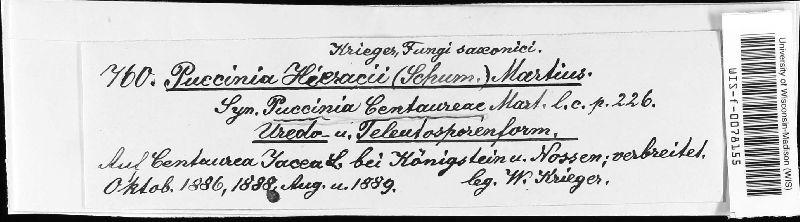 Krieger, Fungi saxonici.
760. Puccinia Hieracii (Schum.) Martius.
Syn. Puccinia Centaureae Mart. l. c. p. 226.
Uredo- u. Teleutosporenform.
Auf Centaurea Jacea L. bei Königstein u. Nossen; verbreitet.
Oktob. 1886, 1888, Aug. u. 1889. leg. W. Krieger.
University of Wisconsin-Madison (WIS)
WIS-f-0078155